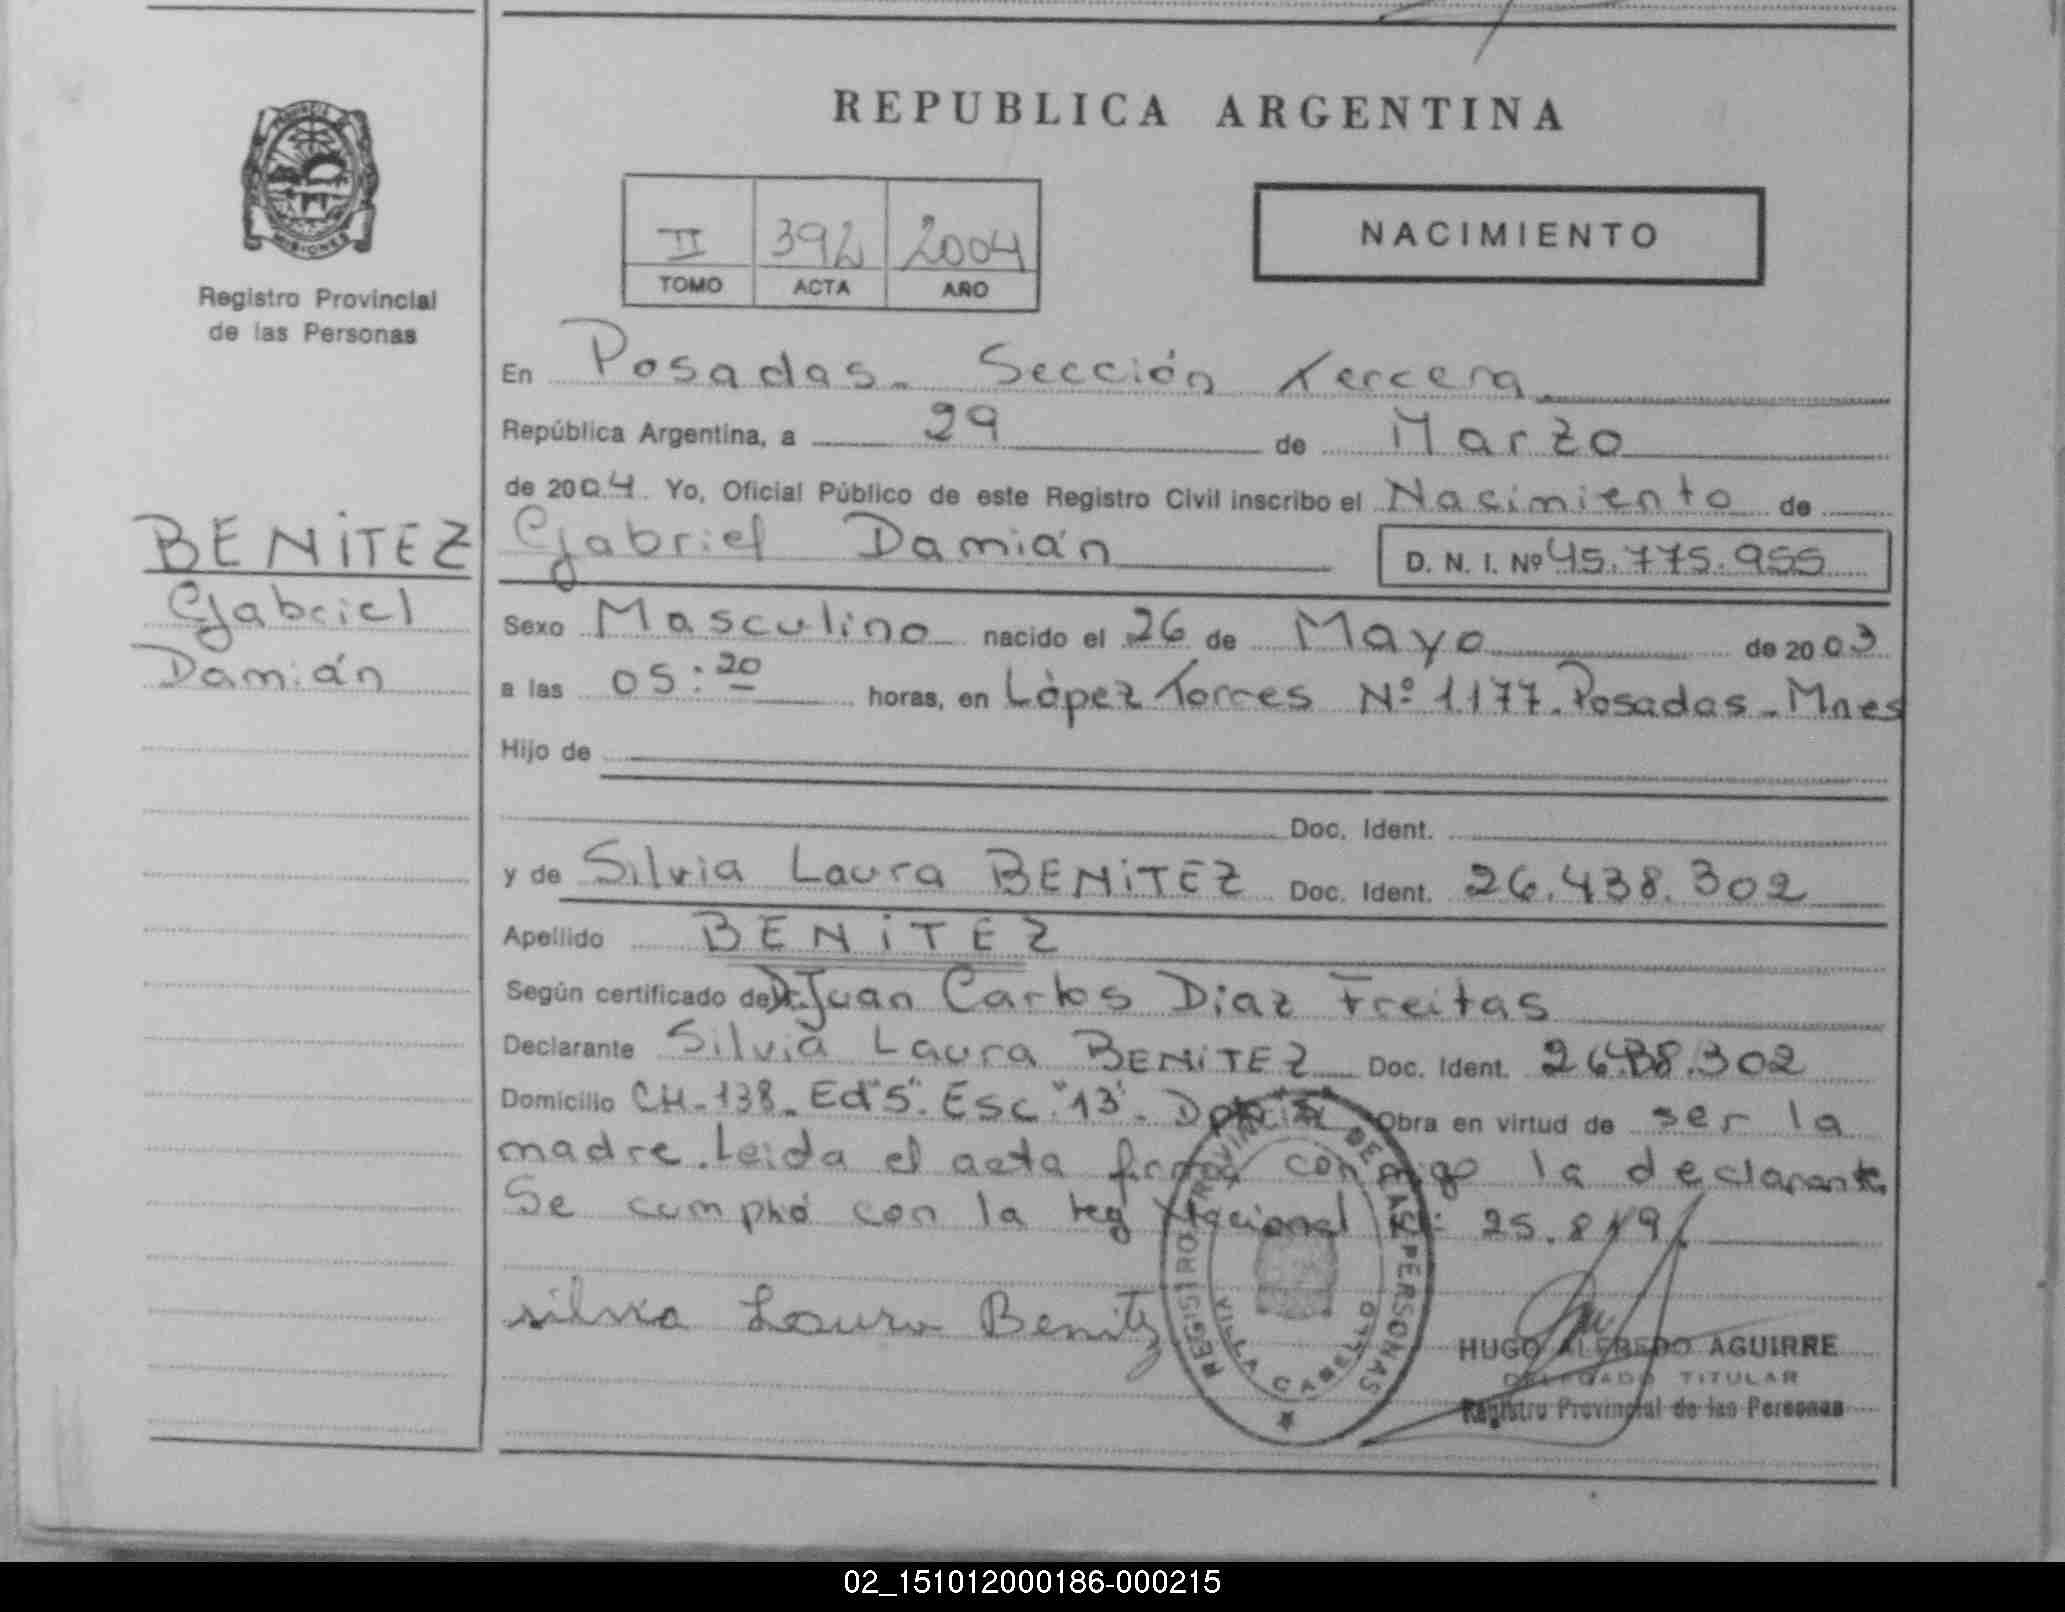 REPUBLICA ARGENTINA
PROVINCIA DE
MISIONES
Registro Provincial
de las Personas
II 392 2004
TOMO ACTA AÑO
NACIMIENTO
En Posadas - Sección Tercera
República Argentina, a 29 de Marzo
de 2004. Yo, Oficial Público de este Registro Civil inscribo el Nacimiento de
BENITEZ
Gabriel
Damián
Gabriel Damián D. N. I. Nº 45.775.955
Sexo Masculino nacido el 26 de Mayo de 2003
a las 05:20 horas, en López Torres Nº 1177. Posadas - Mnes
Hijo de
Doc. Ident.
y de Silvia Laura BENITEZ Doc. Ident. 26.438.302
Apellido BENITEZ
Según certificado de Dr. Juan Carlos Diaz Freitas
Declarante Silvia Laura BENITEZ Doc. Ident. 26.438.302
Domicilio CH-138- Ed "5". Esc "13". Obra en virtud de ser la
madre. Leida el acta firma conmigo la declarante
Se cumplió con la Ley Nacional Nº: 25.819.
silvia Laura Benitez
REGISTRO PROVINCIAL DE LAS PERSONAS
VILLA CABELLO
HUGO ALFREDO AGUIRRE
DELEGADO TITULAR
Registro Provincial de las Personas
02_151012000186-000215